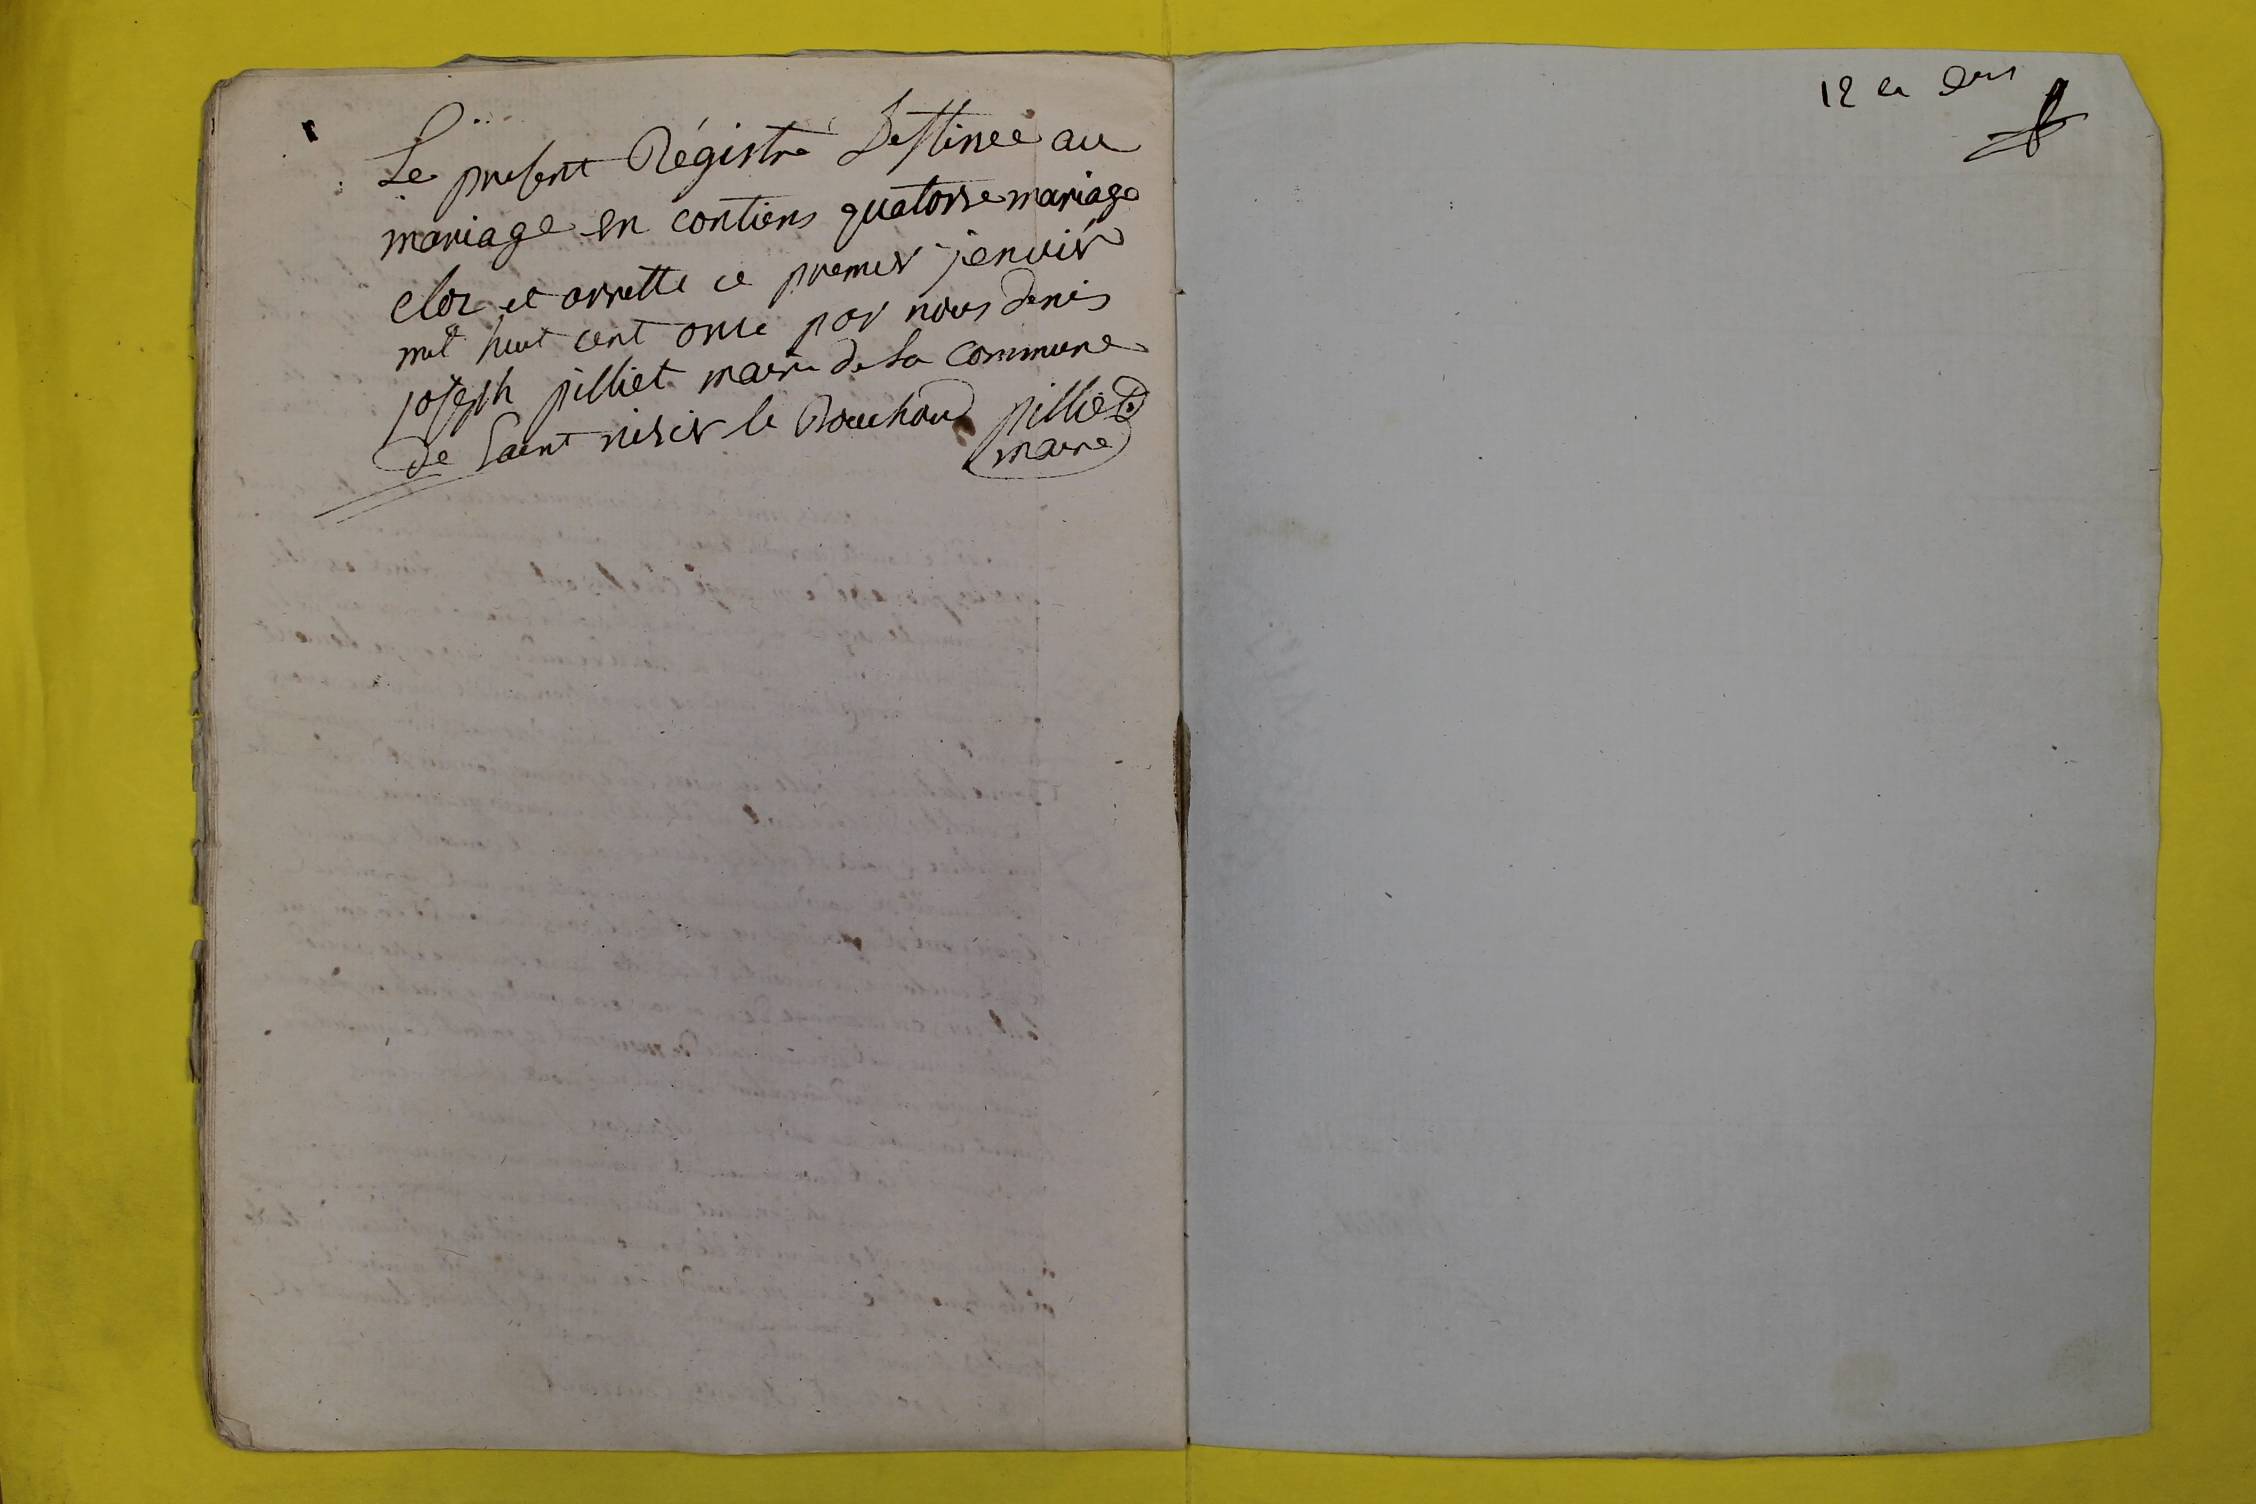 Le present Régistre Destinee au
mariage en contiens quatorse mariage
cloz et arrette ce premier jenvier
mil huit cent onse par nous denis
joseph pilliet maire de la commune
de Saint nisier le Bouchoud pilliet
maire
12 en